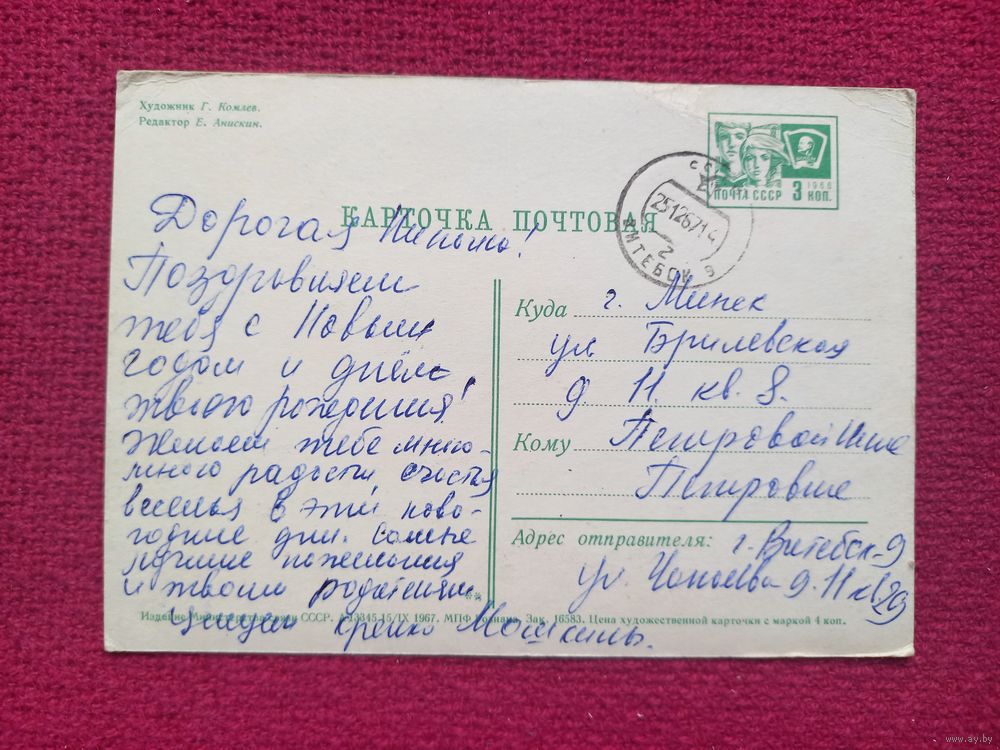 Художник Г. Комлев.
Редактор Е. Анискин.
ПОЧТА СССР 3 КОП.
1966
251267 14
2
ВИТЕБСК 9
КАРТОЧКА ПОЧТОВАЯ
Дорогая !
Поздравляем
тебя с Новым
годом и днём
твоего рождения!
Желаем тебе много-
много радости, счастья
веселья в эти ново-
годние дни. Самые
лучшие пожелания
и твоим родителям
Целуем крепко Мошкины.
Куда г. Минск
ул Брилевская
д 11. кв. 8.
Кому Петровой Нине
Петровне
Адрес отправителя: г. Витебск-9
ул. Чапаева д. 11 кв 29
Издание Министерства связи СССР. 15/IX 1967. МПФ Гознака. Зак. 16583. Цена художественной карточки с маркой 4 коп.
www.ay.by